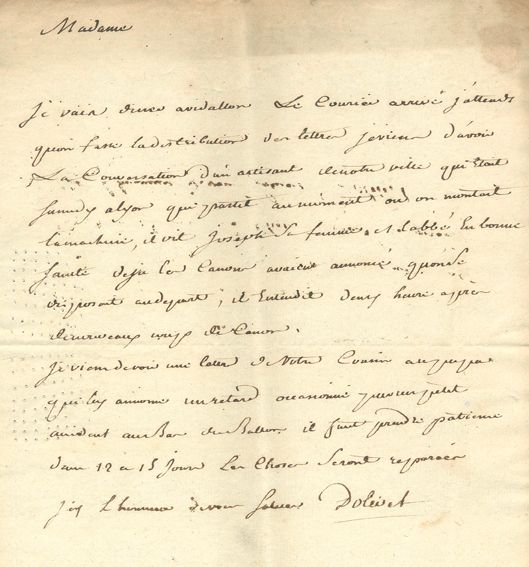 Madame
Je vais diner avidallon Le Courier arrivé j'attends
quon fasse la distribution des lettres je viens d'avoir
La Conversation d'un artisant denotre ville qui était
samedy alyon qui partit aumoment où on montait
lamachine, il vit Joseph Sa femme et l'abbé En bonne
Santé deja les Canons avaient annoncé quonse
disposait audepart, il Entendit deux heures après
denouveaux coups de Canon.
Je viens devoir une letre de Notre Cousin
qui luy annonce un retard occasionné par un petit
accident au Bas du Ballon. il faut prendre patience
dans 12 a 15 Jours Les Choses Seront reparées
j'ay L'honneur devous Saluer Dolivet